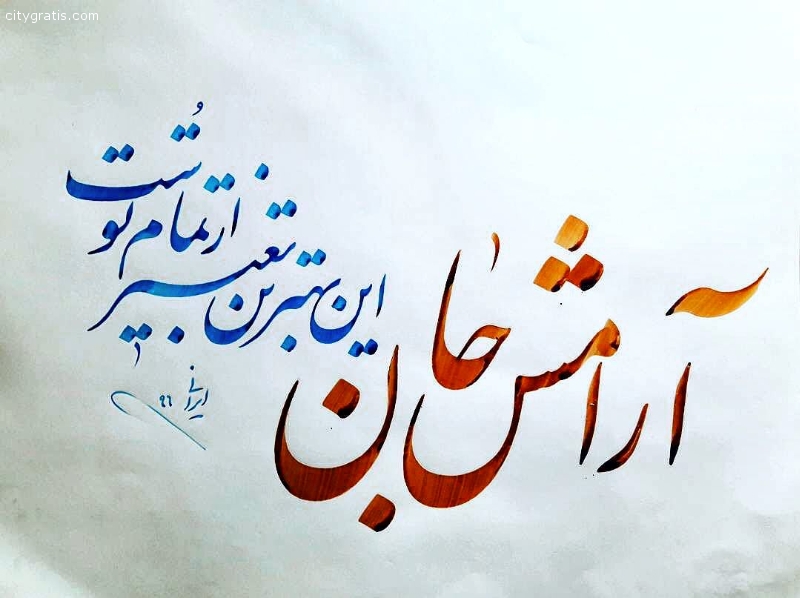 citygratis.com
آرامش جان
این بهترین تعبیرِ
از تمام توُست
ایرانی
۹۶